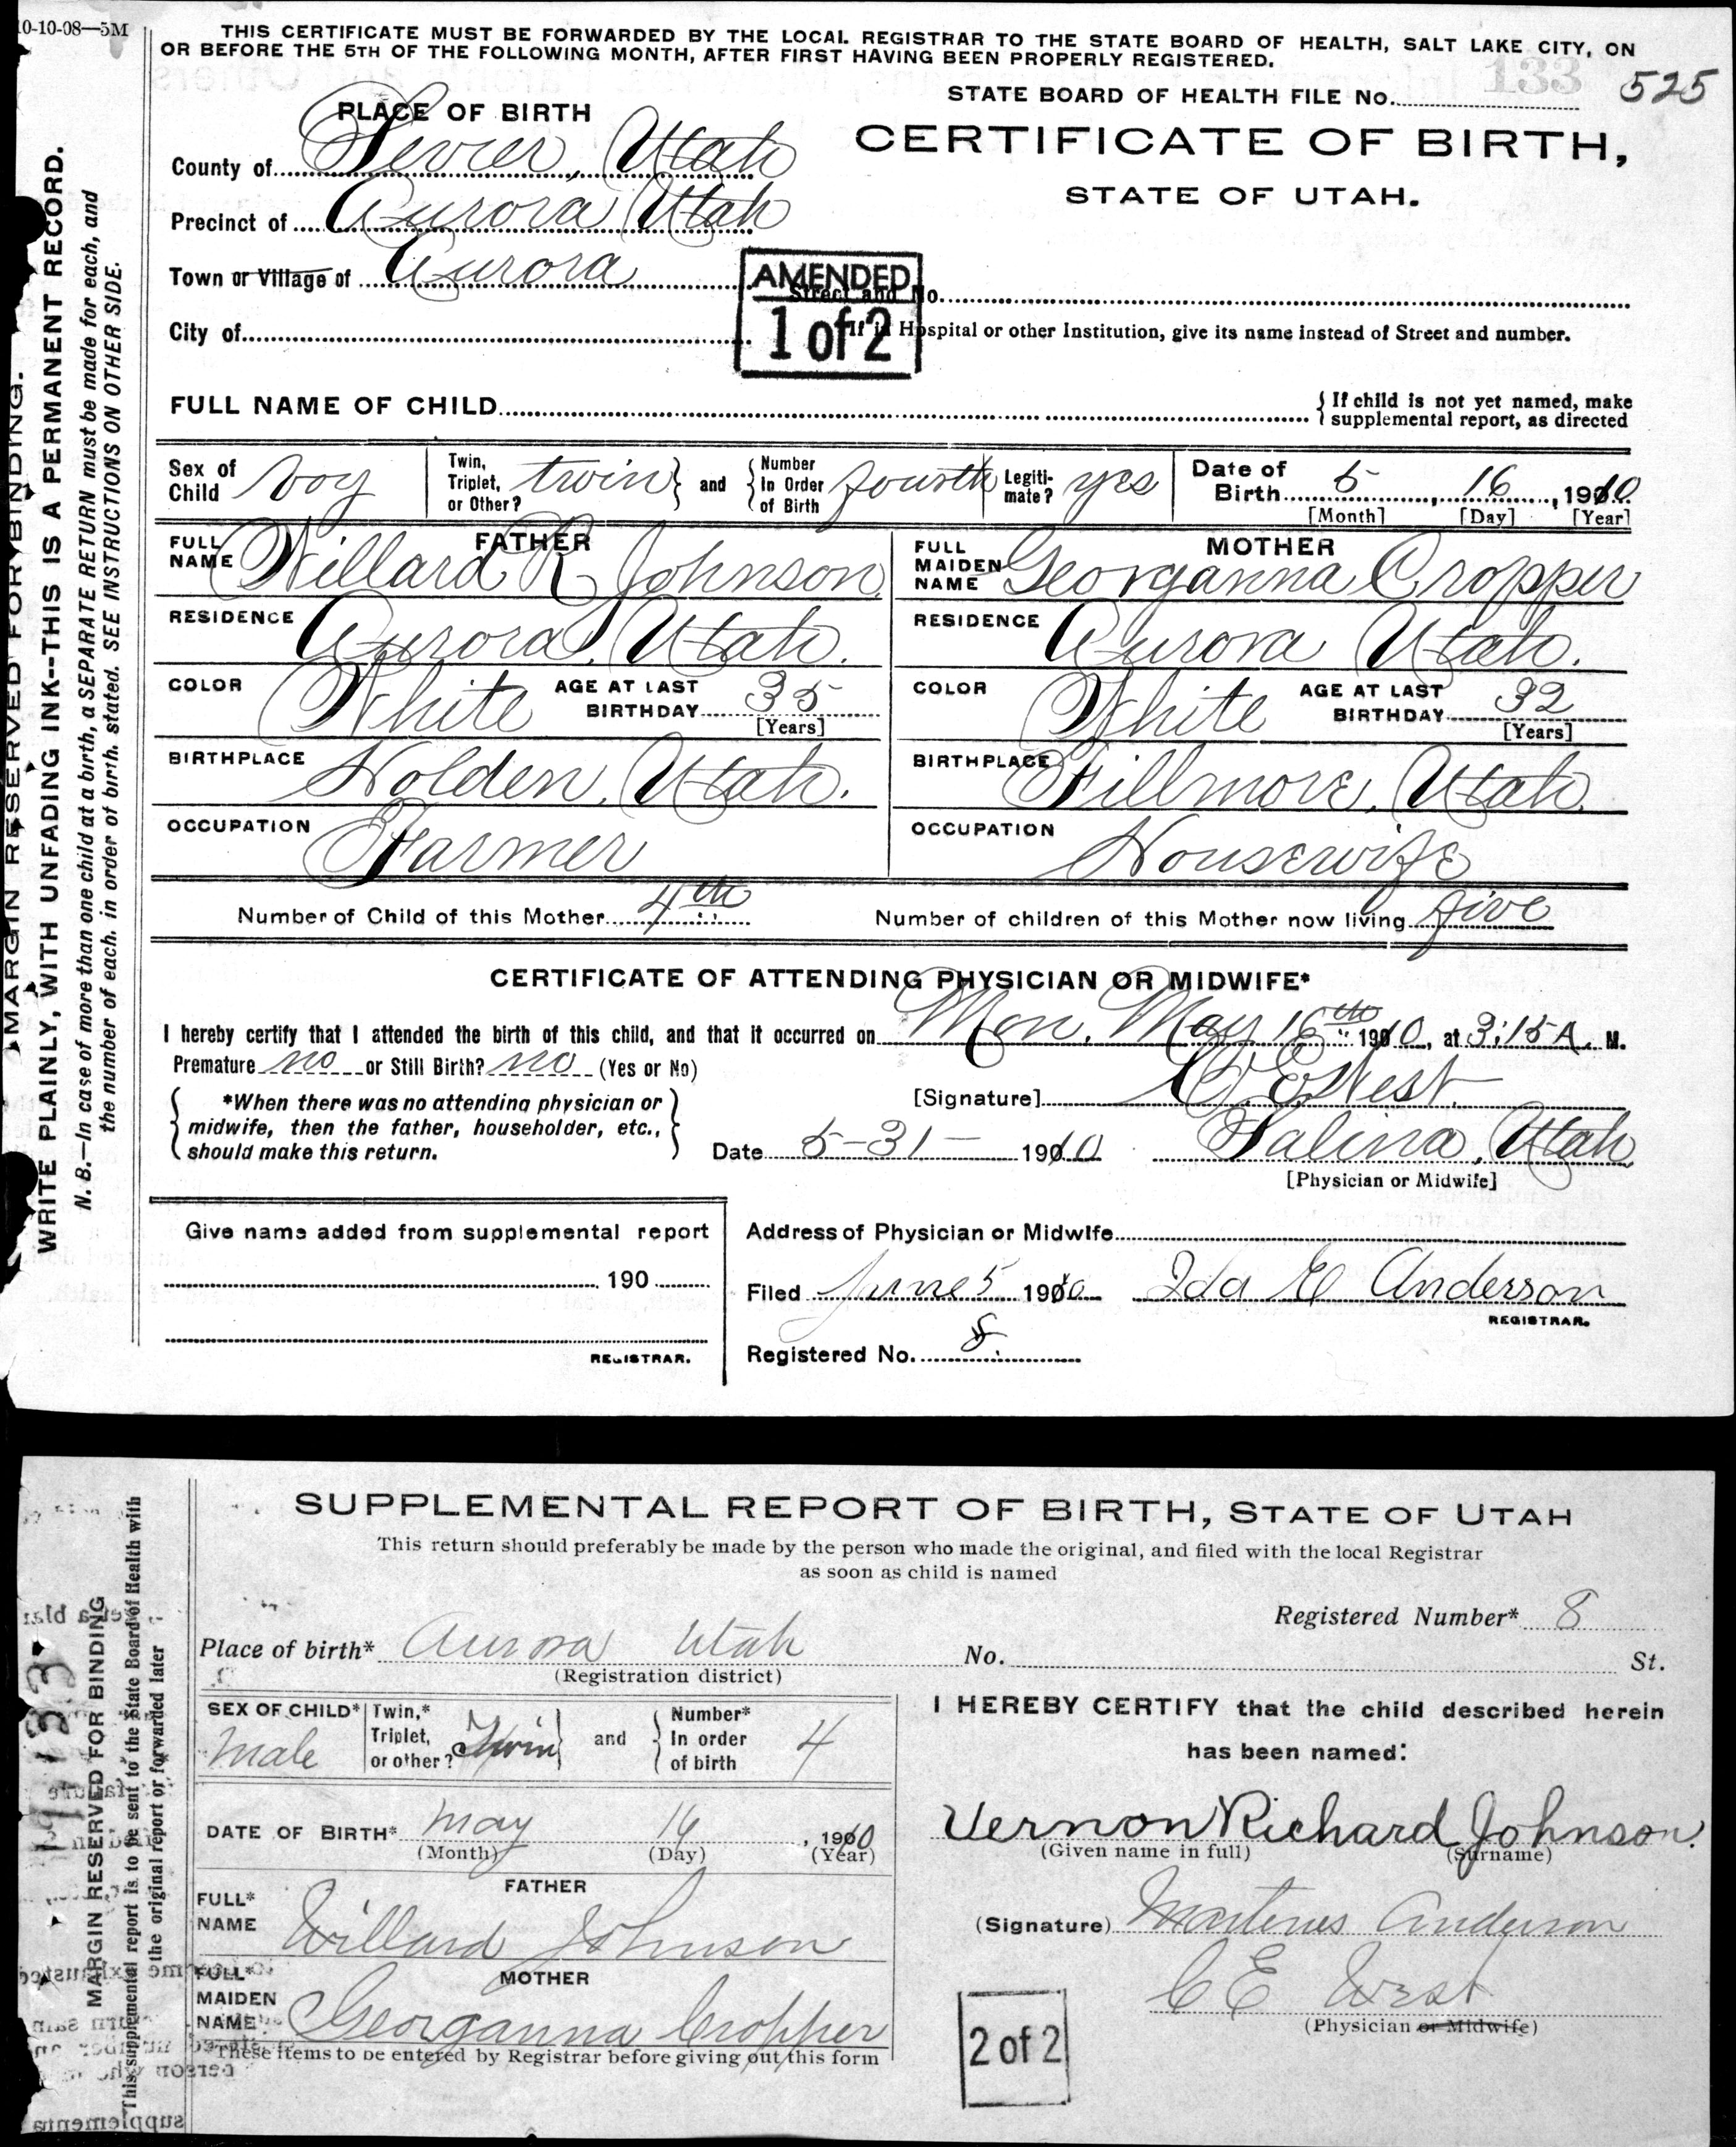 10-10-08—5M
THIS CERTIFICATE MUST BE FORWARDED BY THE LOCAL REGISTRAR TO THE STATE BOARD OF HEALTH, SALT LAKE CITY, ON
OR BEFORE THE 5TH OF THE FOLLOWING MONTH, AFTER FIRST HAVING BEEN PROPERLY REGISTERED.
133
STATE BOARD OF HEALTH FILE No. 525
PLACE OF BIRTH
CERTIFICATE OF BIRTH,
STATE OF UTAH.
County of Sevier, Utah
Precinct of Aurora Utah
Town or Village of Aurora
AMENDED
1 of 2
Street and No.
City of
If in Hospital or other Institution, give its name instead of Street and number.
FULL NAME OF CHILD
If child is not yet named, make
supplemental report, as directed
Sex of Child boy
Twin, Triplet, or Other? twin
and
Number In Order of Birth fourth
Legiti-mate? yes
Date of Birth 5, 16, 1910
[Month] [Day] [Year]
FATHER
FULL NAME Willard R Johnson
RESIDENCE Aurora, Utah.
COLOR White AGE AT LAST BIRTHDAY 35
[Years]
BIRTHPLACE Holden, Utah.
OCCUPATION Farmer
MOTHER
FULL MAIDEN NAME Georganna Cropper
RESIDENCE Aurora Utah.
COLOR White AGE AT LAST BIRTHDAY 32
[Years]
BIRTHPLACE Fillmore, Utah.
OCCUPATION Housewife
Number of Child of this Mother 4th
Number of children of this Mother now living five
CERTIFICATE OF ATTENDING PHYSICIAN OR MIDWIFE*
I hereby certify that I attended the birth of this child, and that it occurred on Mon. May 16th 1910, at 3:15 A. M.
Premature no or Still Birth? no (Yes or No)
*When there was no attending physician or
midwife, then the father, householder, etc.,
should make this return.
[Signature] C. E. West.
Date 5-31- 1910 Salina, Utah
[Physician or Midwife]
Give name added from supplemental report
190
REGISTRAR.
Address of Physician or Midwife
Filed June 5 1910 Ida E Anderson
REGISTRAR.
Registered No. 8.
MARGIN RESERVED FOR BINDING.
WRITE PLAINLY, WITH UNFADING INK--THIS IS A PERMANENT RECORD.
N. B.—In case of more than one child at a birth, a SEPARATE RETURN must be made for each, and
the number of each, in order of birth, stated. SEE INSTRUCTIONS ON OTHER SIDE.
SUPPLEMENTAL REPORT OF BIRTH, STATE OF UTAH
This return should preferably be made by the person who made the original, and filed with the local Registrar
as soon as child is named
Registered Number* 8
Place of birth* Aurora Utah No. St.
(Registration district)
SEX OF CHILD* Male
Twin,* Triplet, or other? Twin
and
Number* In order of birth 4
DATE OF BIRTH* May 16, 1910
(Month) (Day) (Year)
FATHER
FULL* NAME Willard Johnson
MOTHER
FULL* MAIDEN NAME Georganna Cropper
These items to be entered by Registrar before giving out this form
I HEREBY CERTIFY that the child described herein
has been named:
Vernon Richard Johnson.
(Given name in full) (Surname)
(Signature) Anderson
C E West
(Physician or Midwife)
2 of 2
MARGIN RESERVED FOR BINDING
This supplemental report is to be sent to the State Board of Health with
the original report or forwarded later